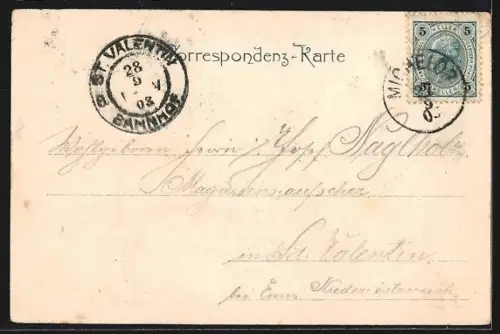 Correspondenz-Karte
5 HELLER 5
5 HELLER 5
ST. VALENTIN
28
9
V
03
BAHNHOF
MICHELDO
27
9
03
Wohlgeboren Herrn Josef Naglholz
Magazinsaufseher
in St. Valentin
bei Enns. Niederösterreich.